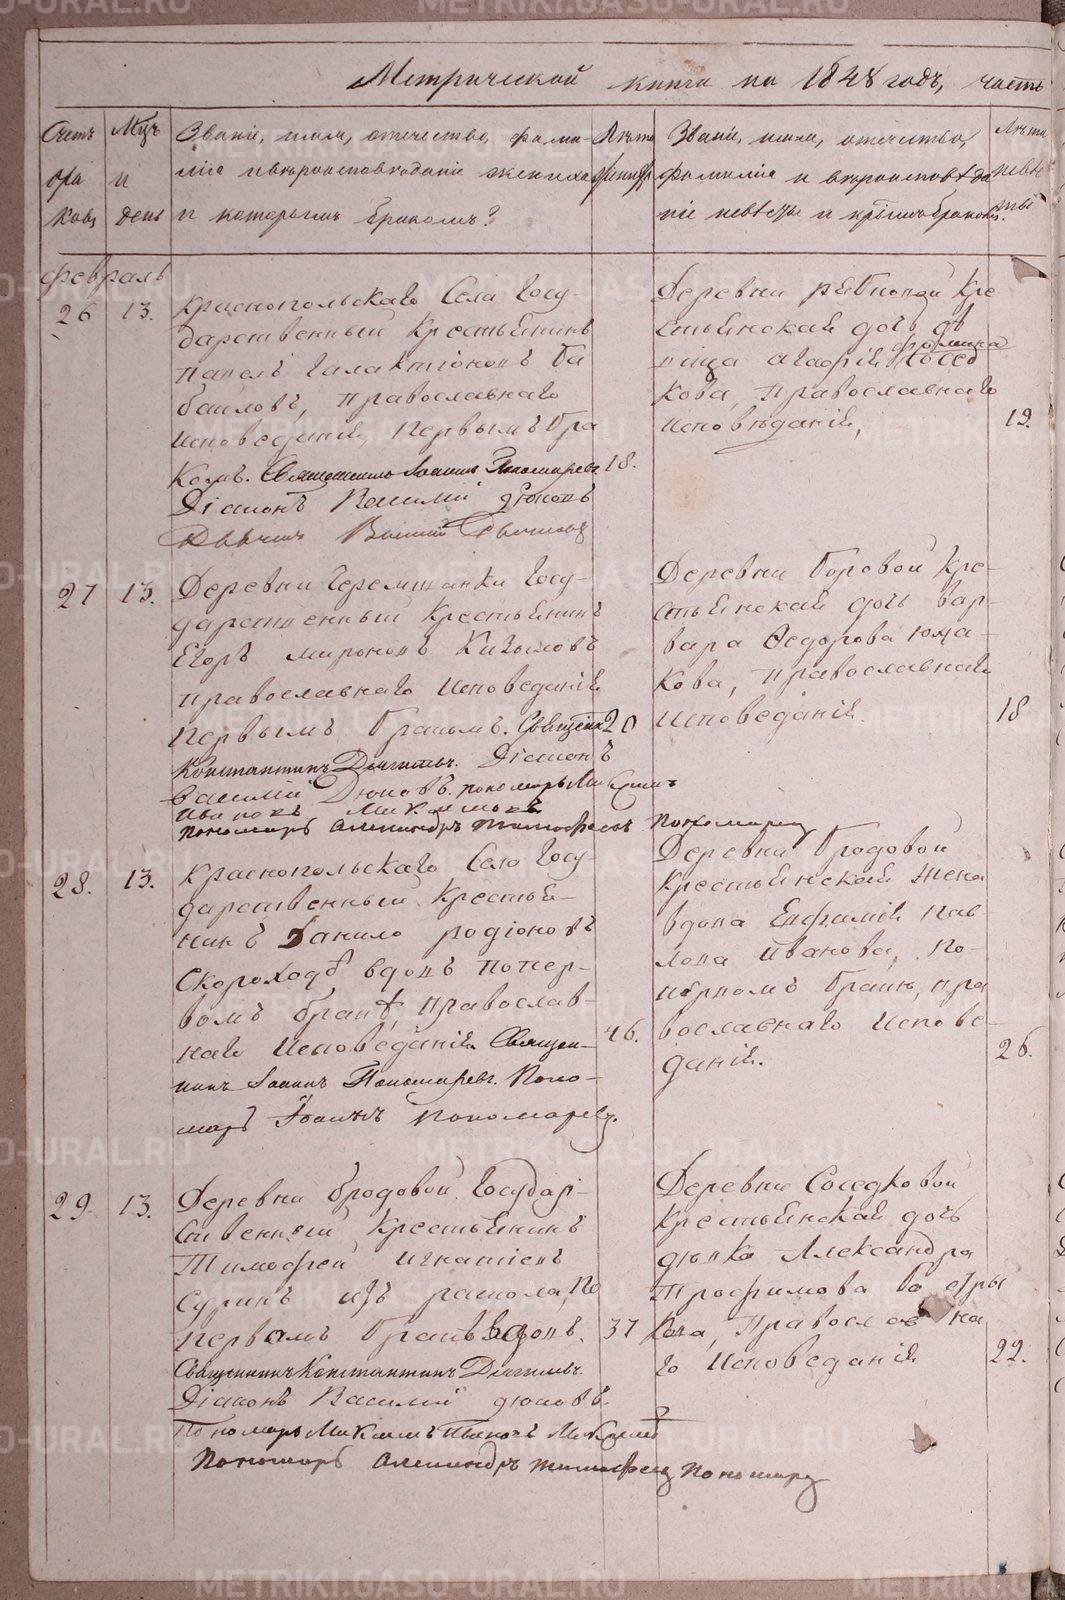 Метрической книги на 1848 годъ, часть
Счетъ браковъ
Мцъ и день
Званіе, имя, отечество, фамилія и вѣроисповѣданіе жениха и которымъ бракомъ?
Лѣта жениха
Званіе, имя, отечество, фамилія и вѣроисповѣданіе невѣсты и которымъ бракомъ.
Лѣта невѣсты
февраль
26
13.
Краснопольскаго Села Госу-
дарственный Крестьянинъ
Павелъ Галактіоновъ Ба
баиловъ, Православнаго
Исповеданія, первымъ бра
комъ. Священникъ Іоаннъ Пономаревъ
Діаконъ Василій Дюковъ
18.
Деревни рябиновой Кре
стьянская дочь дѣ
вица Агафія фомина Сосед
кова, Православнаго
Исповѣданія,
19.
27
13.
Деревни Черемшанки Госу-
дарственный Крестьянинъ
Егоръ мироновъ Кизиловъ
Православнаго Исповеданія
первымъ бракомъ. Священк
Константинъ Дягилевъ. Діаконъ
Василій Дюковъ. пономарь Максимъ
Ивановъ
пономарь Александръ Тимофеевъ Пономаревъ
20
Деревни Боровой Кре-
стьянская дочь Вар-
вара Ѳедорова Южа-
кова, Православнаго
Исповеданія.
18
28.
13.
Краснопольскаго Села Госу-
дарственный Крестья-
нинъ Данило родіоновъ
Скороходъ, вдовъ попер-
вомъ бракѣ, Православ-
наго Исповеданія. Священ-
никъ Іоаннъ Пономаревъ. Поно-
марь Іоаннъ Пономаревъ.
46.
Деревни Бродовой
Крестьянская жена
вдова Евфимія Пав-
лова Иванова, по-
первомъ бракѣ, пра
вославнаго Испове-
данія.
26.
29
13.
Деревни Бродовой Государ-
ственный Крестьянинъ
Тимофей Игнатіевъ
Суринъ изъ раскола, По
первомъ бракѣ вдовъ.
Священникъ Константинъ Дягилевъ.
Діаконъ Василій Дюковъ.
Пономарь Максимъ Ивановъ
Пономарь Александръ Тимофеевъ Пономаревъ
37
Деревни Соседковой
Крестьянская дочь
девка Александра
Трофимова Бастры
кова, Православна
го Исповеданія
22.
METRIKI.GASO-URAL.RU